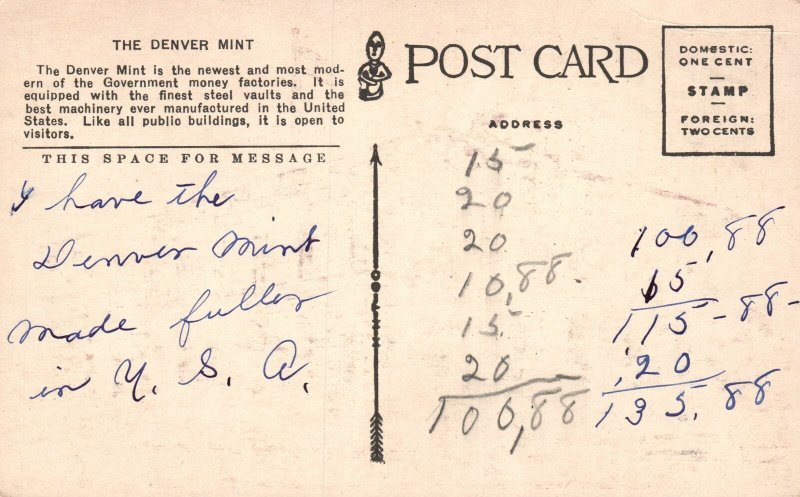 THE DENVER MINT
The Denver Mint is the newest and most mod-
ern of the Government money factories. It is
equipped with the finest steel vaults and the
best machinery ever manufactured in the United
States. Like all public buildings, it is open to
visitors.
THIS SPACE FOR MESSAGE
I have the
Denver Mint
made fuller
in U. S. A.
POST CARD
ADDRESS
DOMESTIC:
ONE CENT
STAMP
FOREIGN:
TWO CENTS
15
20
20
10,88
15
20
100,88
100,88
15
115-88-
,20
135,88